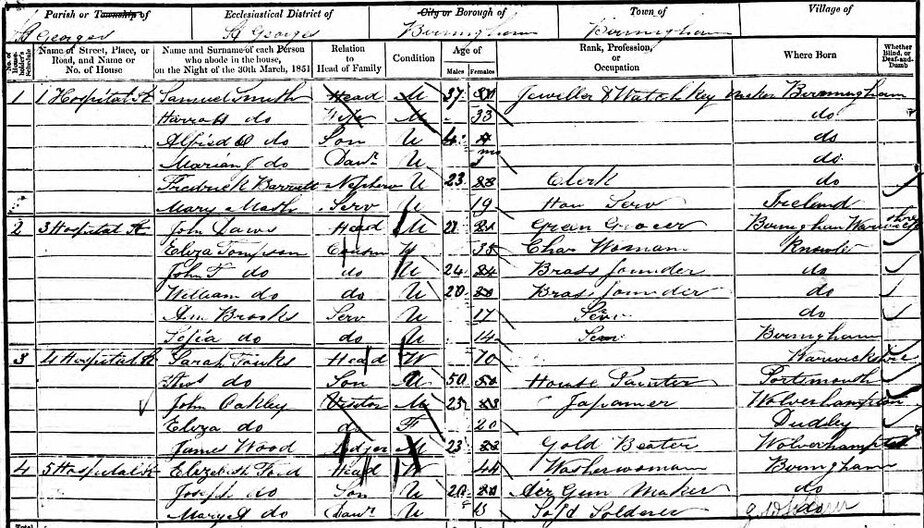 Parish or Township of Ecclesiastical District of City or Borough of Town of Village of
St Georges St Georges Birmingham Birmingham
No. of Householder's Schedule Name of Street, Place, or Road, and Name or No. of House Name and Surname of each Person who abode in the house, on the Night of the 30th March, 1851 Relation to Head of Family Condition Age of Males Females Rank, Profession, or Occupation Where Born Whether Blind, or Deaf-and-Dumb
1 1 Hospital St Samuel Smith Head M 37 Jeweller & Watch Key Maker Birmingham
Harriott do Wife M 33 do
Alfred do Son U 4 do
Marian J do Daur U do
Fredrick Barrett Nephew U 23 Clerk do
Mary Mash Serv U 19 Serv Ireland
2 3 Hospital St John Laws Head U 21 Green Grocer Birmingham Warwickshire
Eliza Tompson Cousin W 35 Char Woman Knowle
John T do do U 24 Brass founder do
William do do U 20 Brass founder do
Ann Brooks Serv U 17 Serv do
Sofia do do U 14 Serv Birmgham
3 4 Hospital St Sarah Fawks Head W 70 Warwickshire
Thos do Son U 50 House Painter Portsmouth
John Oakley Visitor M 23 Japanner Wolverhampton
Eliza do do F 20 Dudley
James Wood Lodger M 23 Gold Beater Wolverhampton
4 5 Hospital St Elizabeth Ford Head W 44 Washerwoman Birmgham
Joseph do Son U 20 Air Gun Maker do
Mary A do Daur U 13 Gold Solderer do
Total